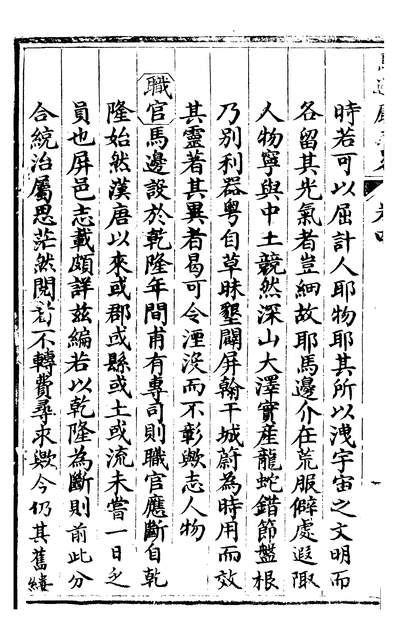 卷四
時若可以屈計人耶物耶其所以洩宇宙之文明而
各留其光氣者豈細故耶馬邊介在荒服僻處遐陬
人物寧與中土競然深山大澤實産龍蛇錯節盤根
乃别利器粤自草昧墾闢屏翰干城蔚為時用而效
其靈著其異者曷可令湮沒而不彰歟志人物
職官馬邊設於乾隆年間甫有專司則職官應斷自乾
隆始然漢唐以來或郡或縣或土或流未嘗一日乏
員也屏邑志載頗詳兹編若以乾隆為斷則前此分
合統治屬思茫然閱訂不轉費尋求歟今仍其舊縷